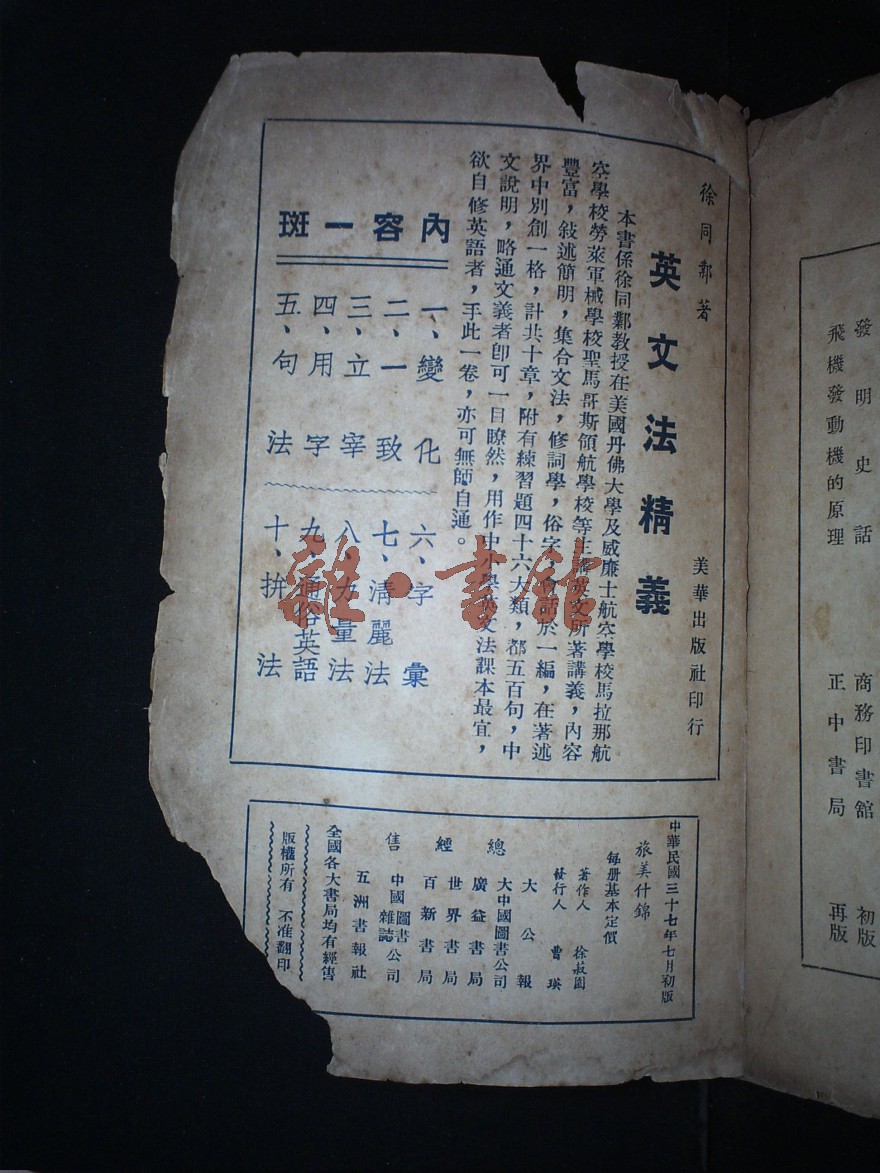 發明史話 商務印書館 初版
飛機發動機的原理 正中書局 再版
徐同鄴著 美華出版社印行
英文法精義
本書係徐同鄴教授在美國丹佛大學及威廉士航空學校馬拉那航
空學校勞萊軍械學校聖馬哥斯領航學校等主講英文所著講義,內容
豐富,敍述簡明,集合文法,修詞學,俗字,會話於一編,在著述
界中別創一格,計共十章,附有練習題四十六大類,都五百句,中
文說明,略通文義者卽可一目瞭然,用作中小學英文法課本最宜,
欲自修英語者,手此一卷,亦可無師自通。
內容一斑
一、變化 六、字彙
二、一致 七、清麗法
三、立宰 八、力量法
四、用字 九、通俗英語
五、句法 十、拚法
中華民國三十七年七月初版
旅美什錦
每册基本定價
著作人 徐菽園
發行人 曹瑛
總經售
大公報
大中國圖書公司
廣益書局
世界書局
百新書局
中國圖書雜誌公司
五洲書報社
全國各大書局均有經售
版權所有 不准翻印
雜·書館